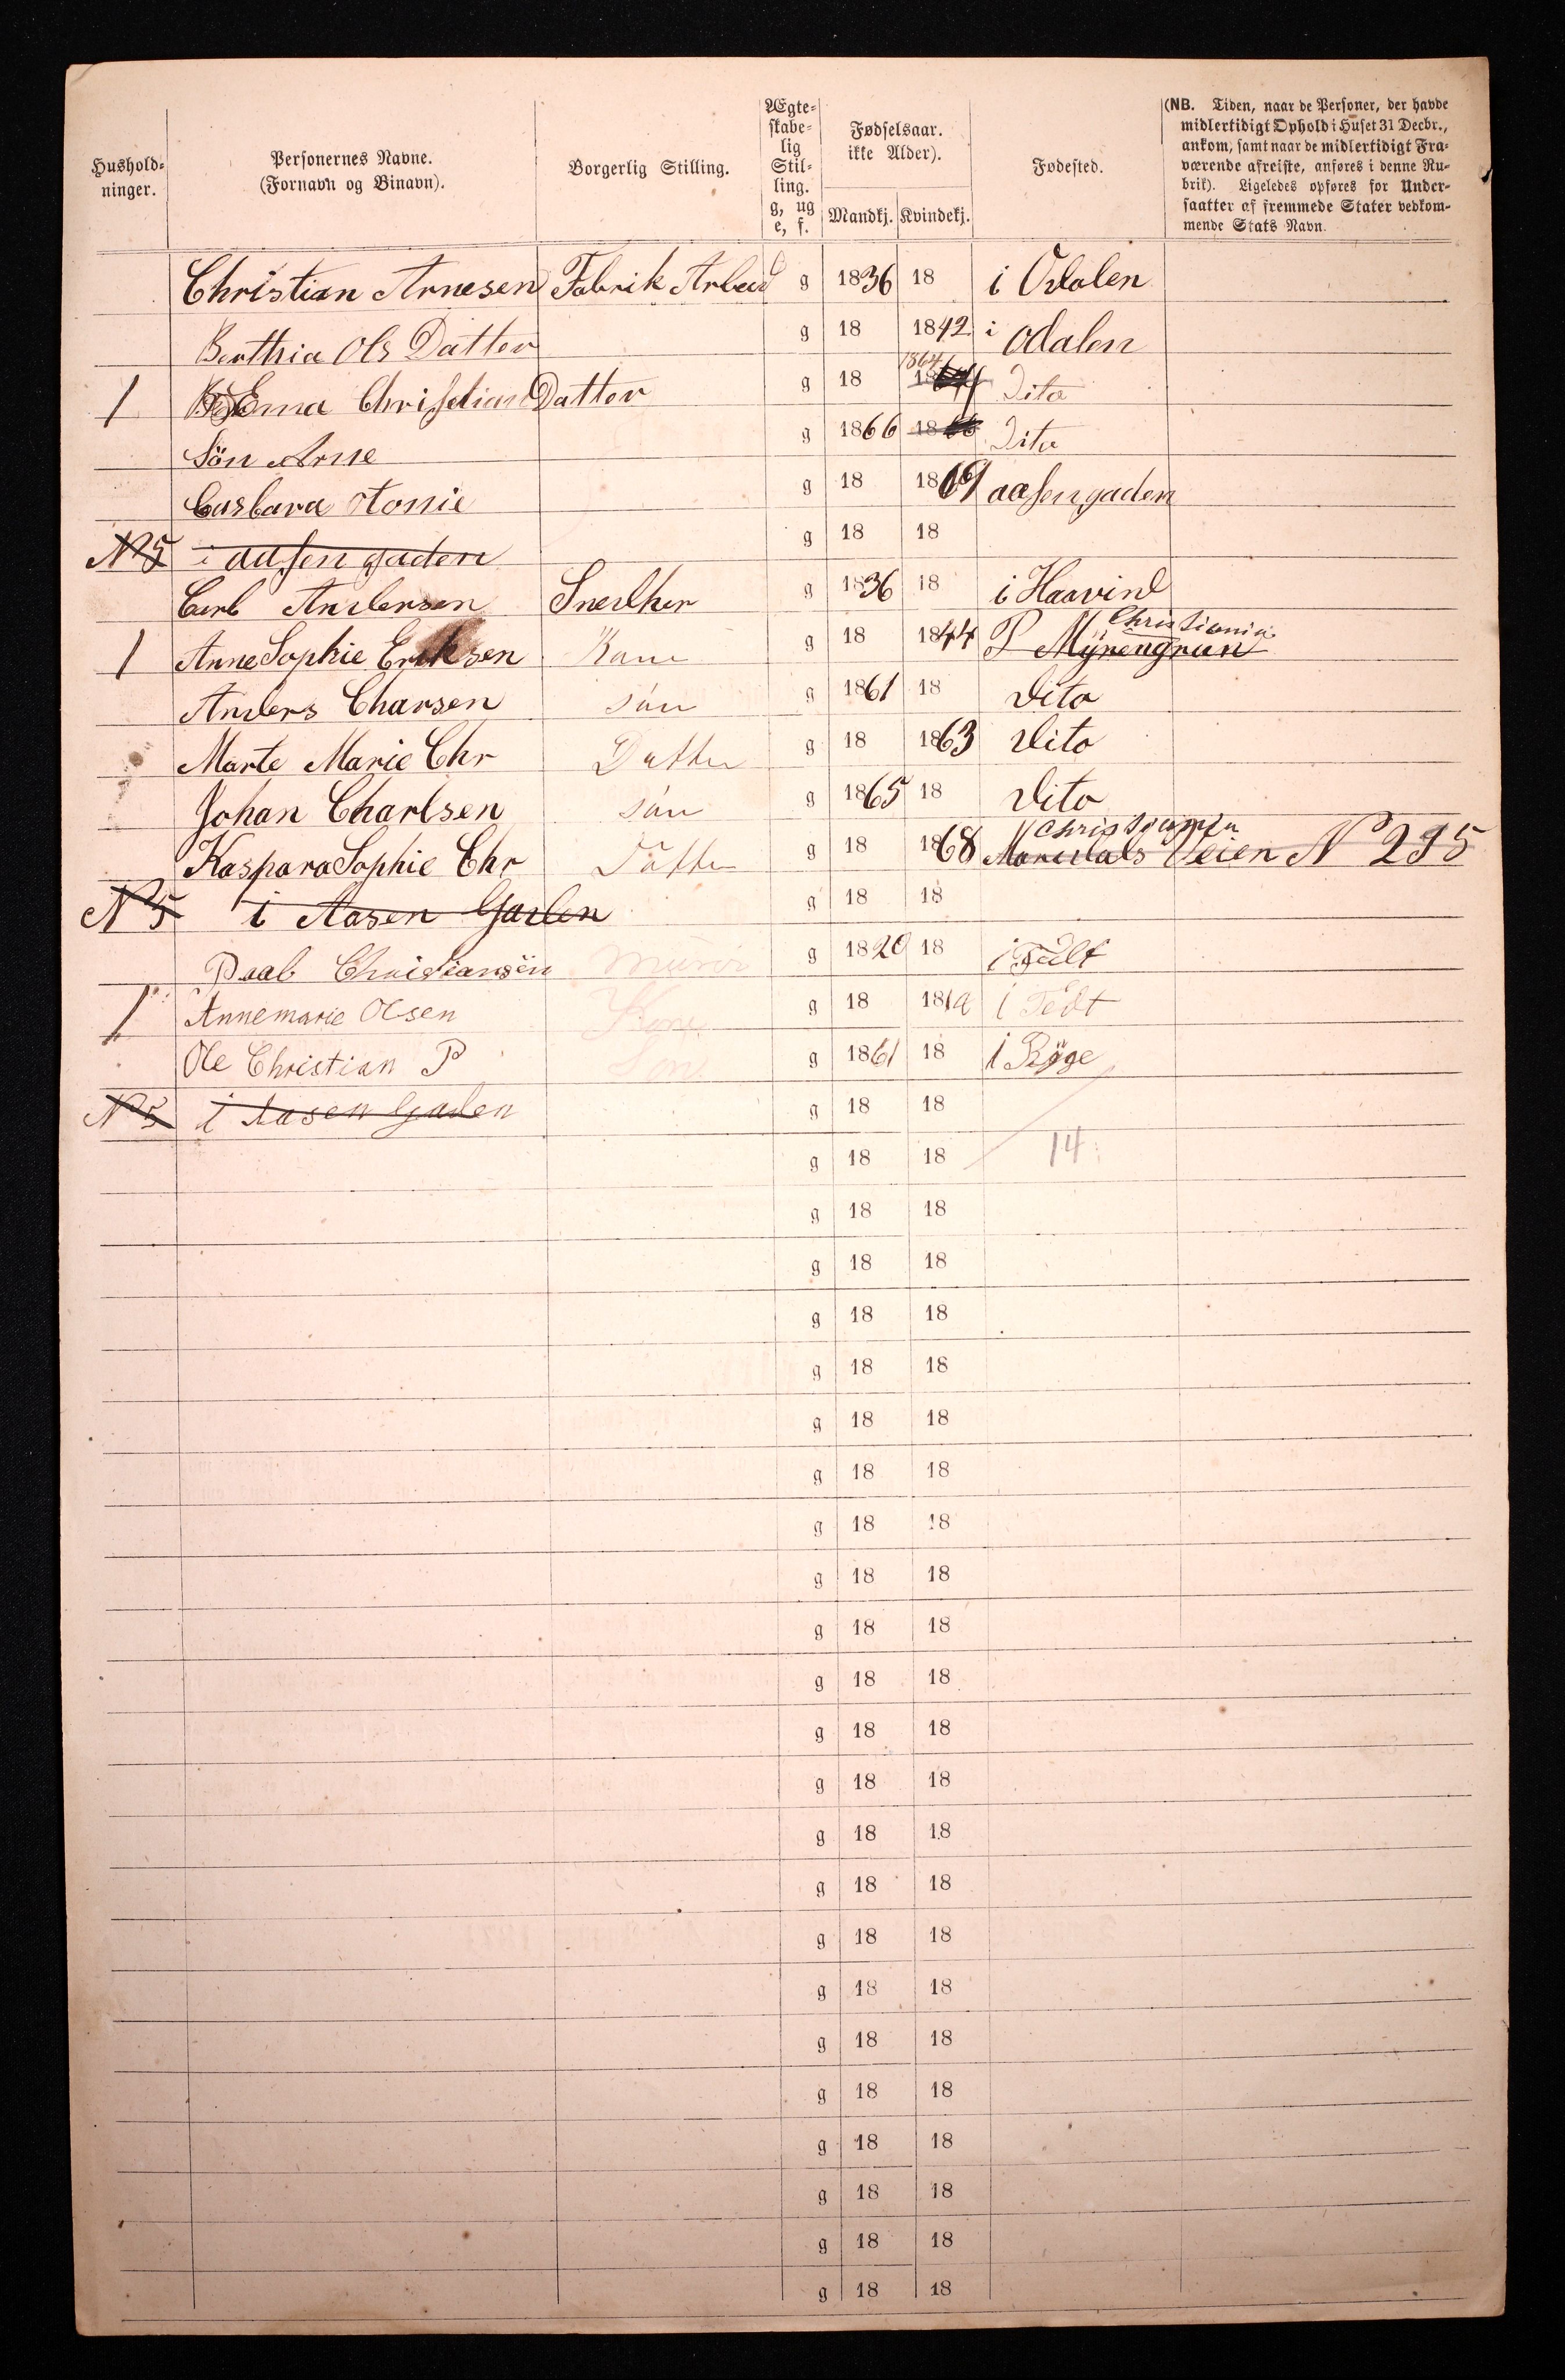 Hushold-
ninger.
Personernes Navne.
(Fornavn og Binavn).
Borgerlig Stilling.
Ægte-
skabe-
lig
Stil-
ling.
g, ug
e, f.
Fødselsaar.
ikke Alder).
Mandkj. Kvindekj.
Fødested.
(NB. Tiden, naar de Personer, der havde
midlertidigt Ophold i Huset 31 Decbr.,
ankom, samt naar de midlertidigt Fra-
værende afreiste, anføres i denne Ru-
brik). Ligeledes opføres for Under-
saatter af fremmede Stater vedkom-
mende Stats Navn.
Christian Arnesen Fabrik Arbeid g 1836 18 i Odalen
Berthia Ols Datter g 18 1842 i Odalen
1 Ema Christian Datter g 18 1864 Dito
Sön Arne g 1866 18 Dito
Casbara Tonie g 18 1869 aasengaden
No 5 i aasen gaden g 18 18
Carl Andersen Snedker g 1836 18 i Haavind
1 Anne Sophie Eriksen Kone g 18 1844 P Myrengrun Christiania
Anders Charsen sön g 1861 18 Dito
Marte Marie Chr Datter g 18 1863 Dito
Johan Charlsen sön g 1865 18 Dito
Kaspara Sophie Chr Datter g 18 1868 Maridals Veien No 295 Christiania
No 5 i Aasen Gaden g 18 18
Paal Christiansen Murer g 1820 18 i
1 Annemarie Olsen Kone g 18 18 i
Ole Christian P Søn g 1861 18 i Rÿge
No 5 i Aasen Gaden g 18 18
g 18 18 14
g 18 18
g 18 18
g 18 18
g 18 18
g 18 18
g 18 18
g 18 18
g 18 18
g 18 18
g 18 18
g 18 18
g 18 18
g 18 18
g 18 18
g 18 18
g 18 18
g 18 18
g 18 18
g 18 18
g 18 18
g 18 18
g 18 18